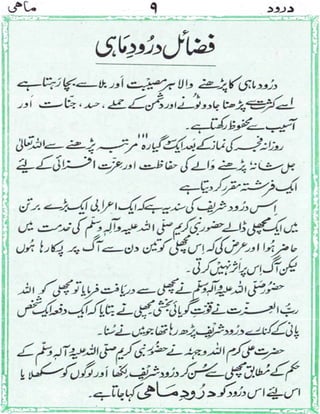 درود ۹ ماہی
فضائل درود ماہی
درود ماہی کا پڑھنے والا ہر مصیبت اور بلا سے بچا رہتا ہے
اسے کثرت سے پڑھنا جادو ٹونے اور دشمن کے حملے، حسد، جنات اور
آسیب سے محفوظ رکھتا ہے۔
روزانہ فجر کی نماز کے بعد ایک گیارہ "۱۱" مرتبہ پڑھنے سے اللہ تعالیٰ
جل شانہٗ پڑھنے والے کی حفاظت اور عزت افزائی کے لیے
ایک فرشتہ مقرر کر دیتا ہے
اس درود شریف کی سند یہ ہے کہ ایک اعرابی ایک بڑے برتن
میں ایک مچھلی ڈالے حضور نبی کریم صلی اللہ علیہ وآلہٖ وسلم کی خدمت میں
حاضر ہوا اور عرض کی کہ اس مچھلی کو تین دن سے آگ پر پکا رہا ہوں
لیکن آگ اس پر اثر نہیں کرتی۔
حضور صلی اللہ علیہ وآلہٖ وسلم نے مچھلی سے دریافت فرمایا تو مچھلی کو اللہ
رب العزت نے قوت گویائی بخشی مچھلی نے بتایا کہ ایک دفعہ ایک شخص
پانی کے کنارے درود شریف پڑھ رہا تھا جو میں نے سنا۔
حضرت علی کرم اللہ وجہہ نے حضور نبی کریم صلی اللہ علیہ وآلہٖ وسلم کے
حکم کے مطابق مچھلی سے سن کر درود شریف لکھا اور لوگوں کو سکھلایا
اس لیے اس درود کو درود ماہی کہا جاتا ہے۔